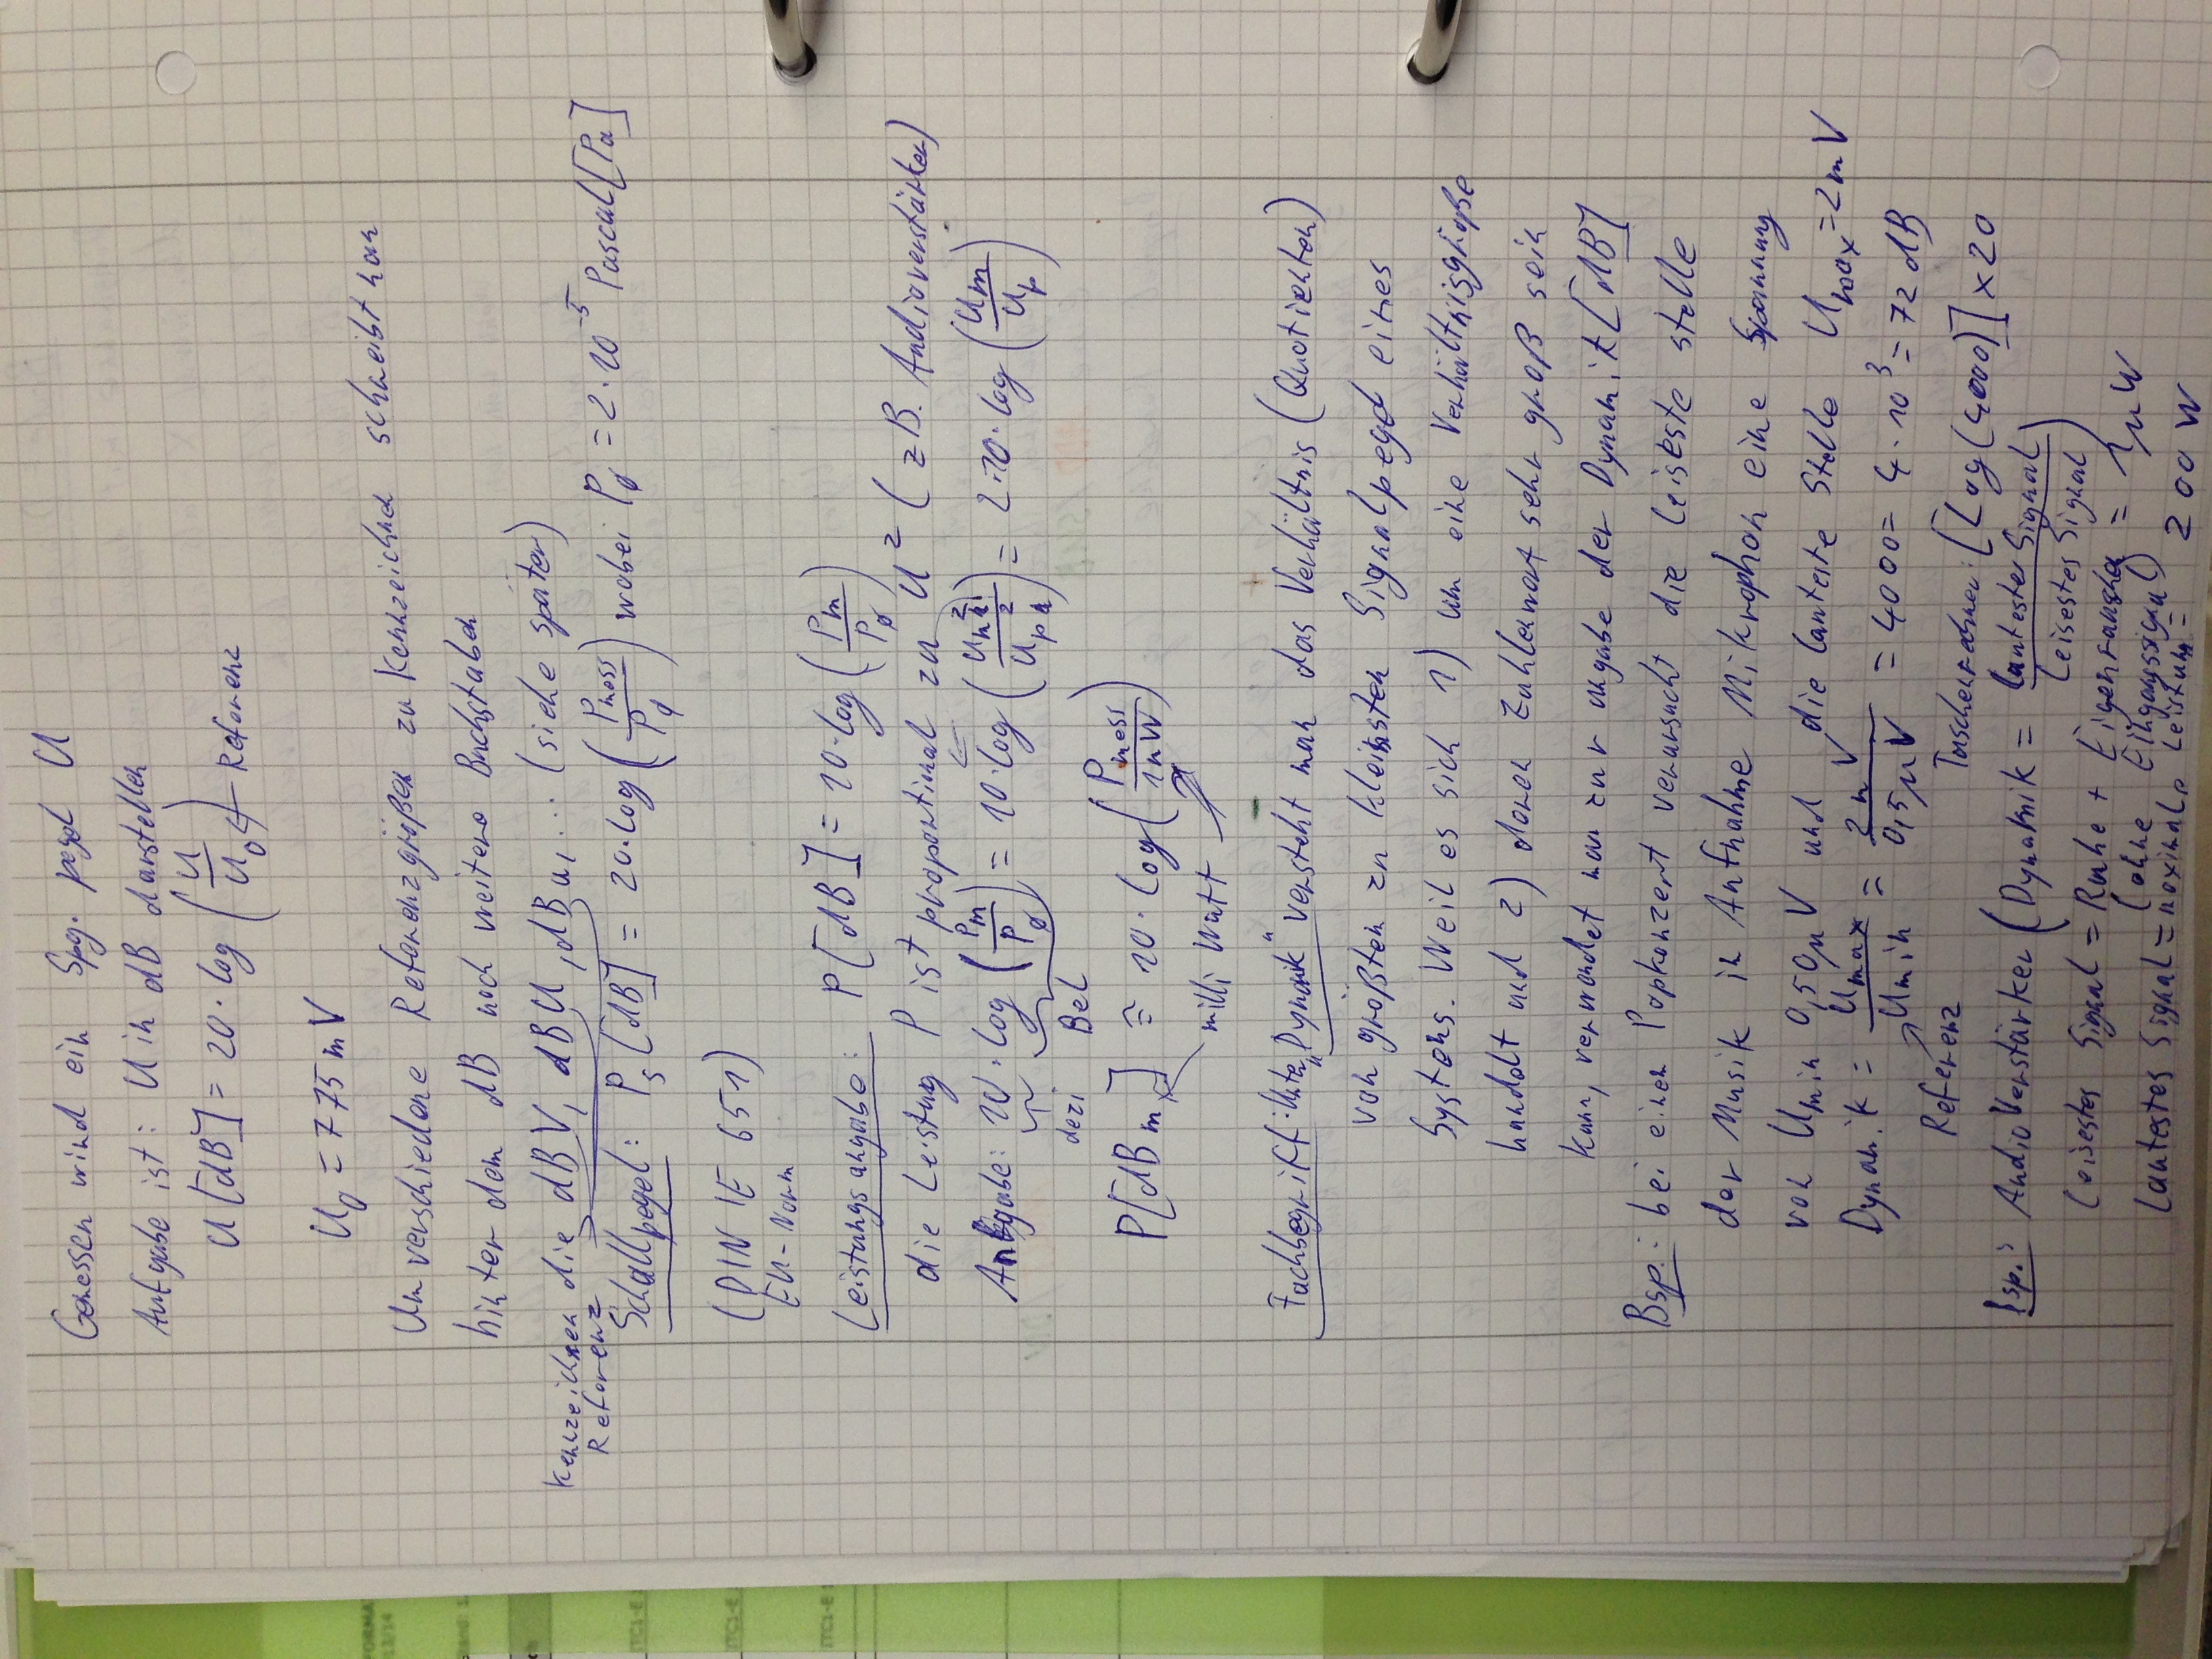 Gemessen wird ein Spg. pegel U
Aufgabe ist: U in dB darstellen
U [dB] = 20 · log (U / U₀) ← Referenz
U₀ = 775 mV
Um verschiedene Referenzgrößen zu kennzeichnen schreibt man
hinter dem dB noch weitere Buchstaben
kennzeichnen die dBV, dBU, dBu, ... (siehe später)
Referenz
Schallpegel: Ps [dB] = 20·log (Pmess / P∅) wobei P∅ = 2·10⁻⁵ Pascal [Pa]
(DIN IE 651)
EU-Norm
Leistungsangabe: P [dB] = 10·log (Pm / P∅)
die Leistug P ist proportional zu U² (zB. Audioverstärker)
Angabe: 10 · log (Pm / P∅) = 10·log (Um² / Up²) = 2·10·log (Um / Up)
dezi Bel
P[dBm] ≙ 10 · log (Pmess / 1mW)
milli Watt
Fachbegriff: Unter „Dynamik" versteht man das Verhältnis (Quotienten)
von größten zu kleinsten Signalpegel eines
Systems. Weil es sich 1) um eine Verhältnisgröße
handelt und 2) deren Zahlenwert sehr groß sein
kann, verwendet man zur angabe der Dynamik [dB]
Bsp.: bei einem Popkonzert verursacht die leiseste stelle
der Musik in Aufnahme Mikrophon eine Spannung
von Umin 0,50µV und die lauteste Stelle Umax = 2mV
Dynamik = Umax / Umin = 2mV / 0,5µV = 4000 = 4 · 10³ = 72 dB
Referenz Taschenrechner: [Log(4000)] x 20
Bsp.: AudioVerstärker (Dynamik = lautestes Signal / Leisestes Signal)
Leisestes Signal = Ruhe + Eigenrauschen = 1µW
(ohne Eingangssignal)
Lautestes Signal = maximale Leistung = 200 W